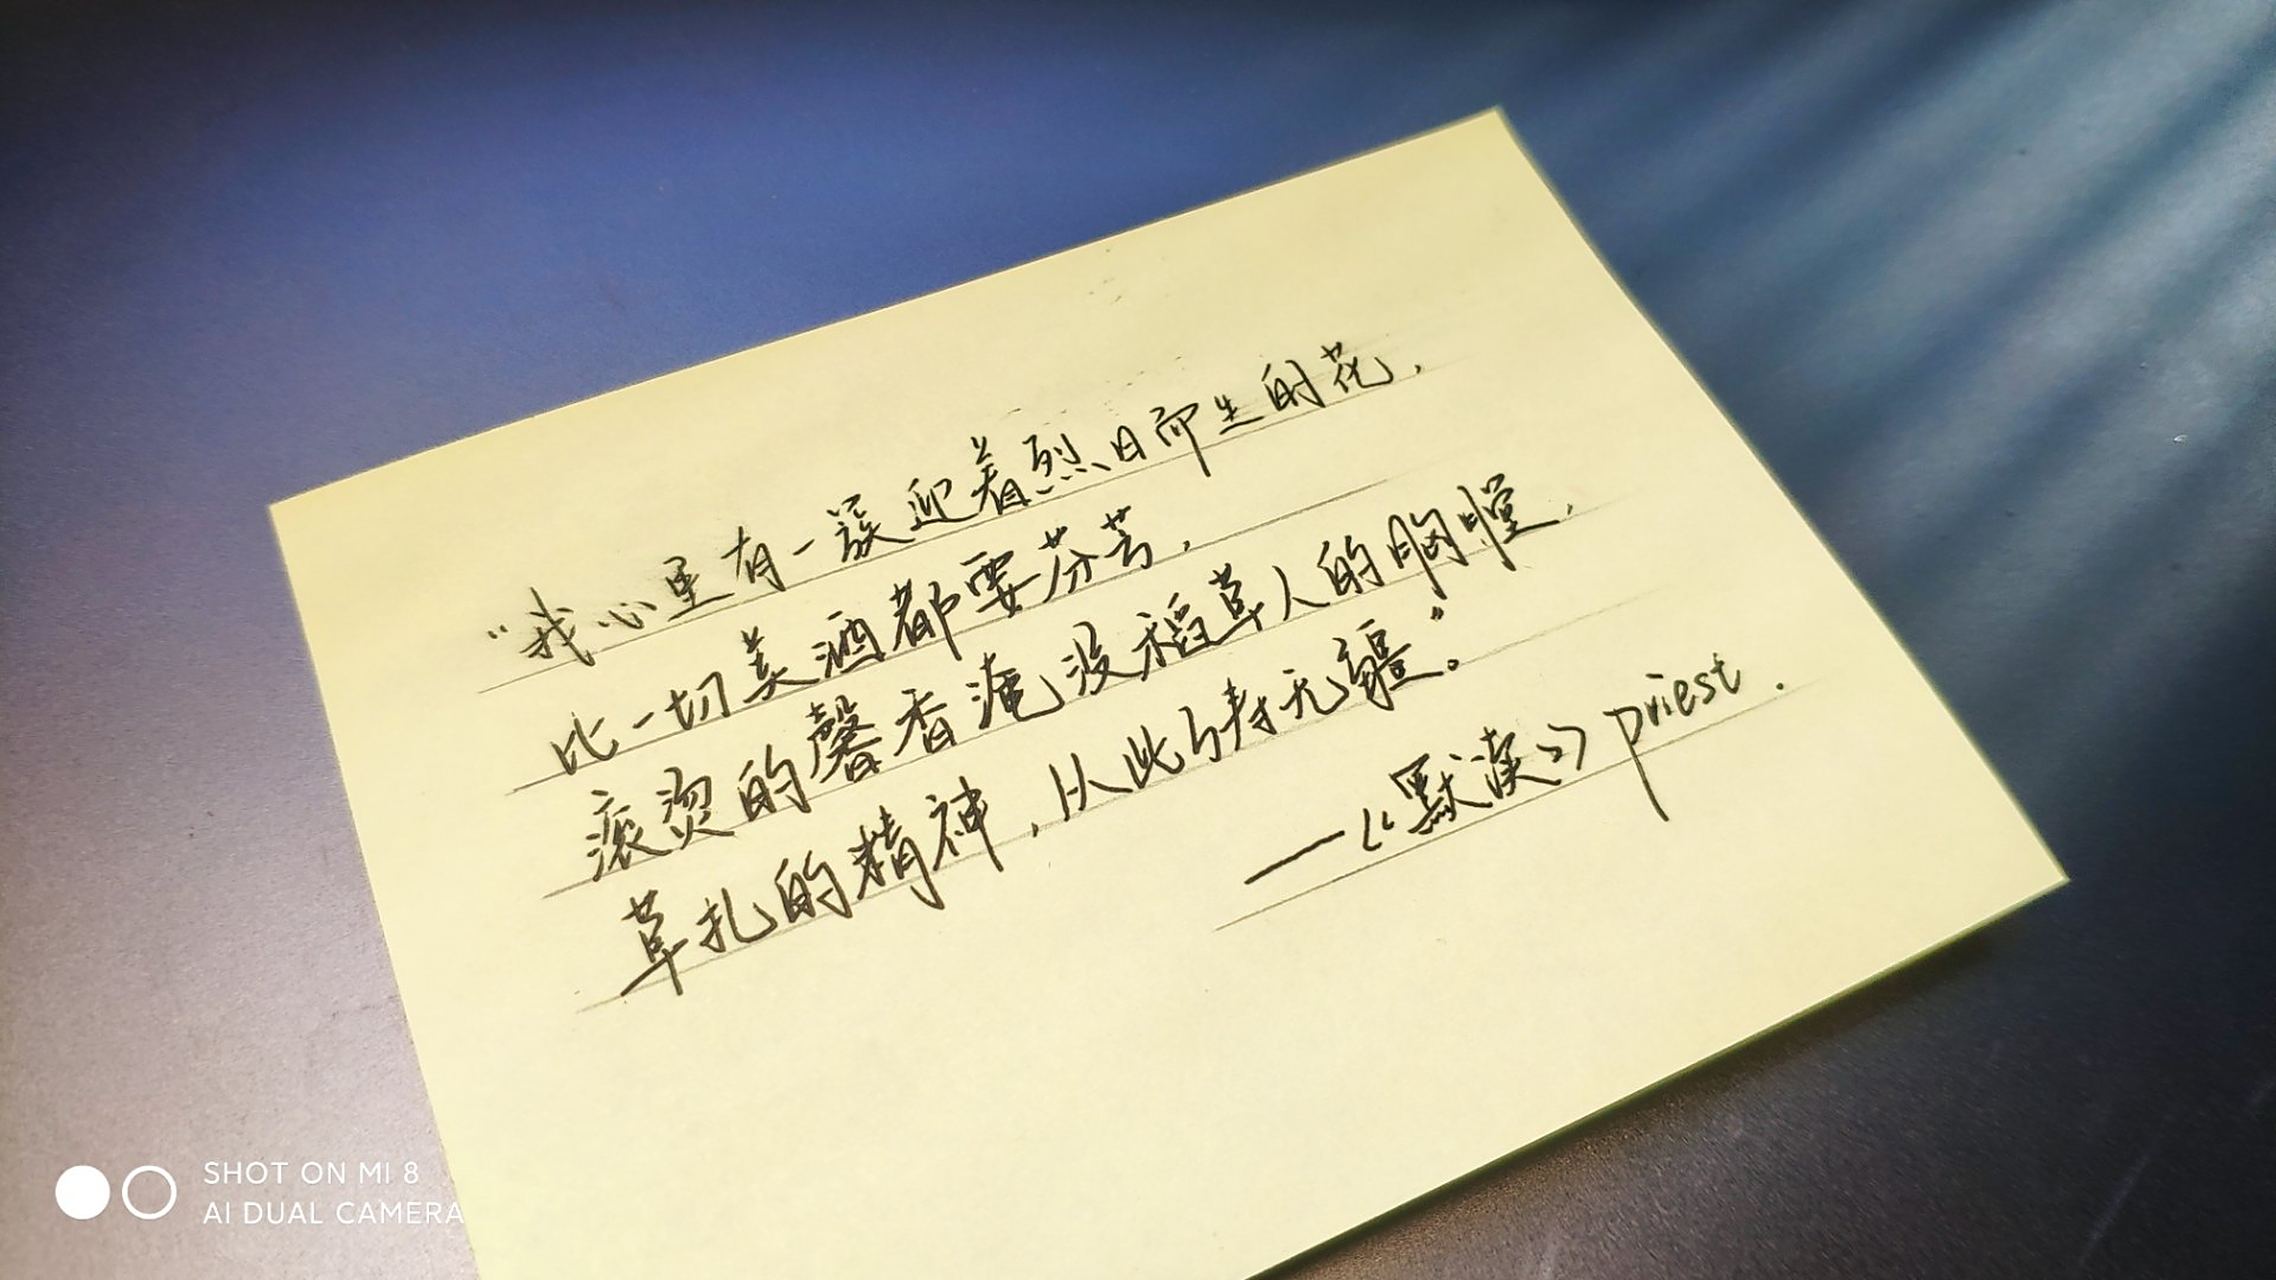 “我心里有一簇迎着烈日而生的花，
比一切美酒都要芬芳，
滚烫的馨香淹没稻草人的胸膛，
草扎的精神，从此万寿无疆。”
——《默读》priest.
SHOT ON MI 8
AI DUAL CAMERA